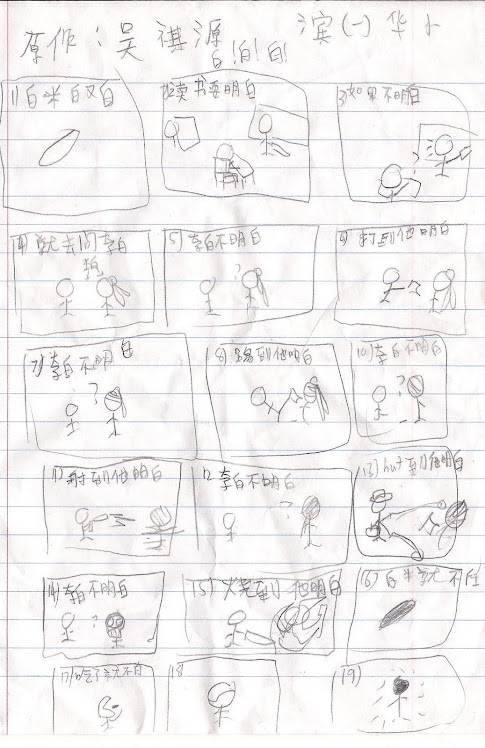 原作：吴祺源 滨(一)华小
白!白!白!
1) 白米白又白
2) 读书要明白
3) 如果不明白
4) 就去问李白
5) 李白不明白
6) 打到他明白
7) 李白不明白
8) 踢到他明白
10) 李白不明白
11) 射到他明白
12 李白不明白
13) 到他明白
14) 李白不明白
15) 烧到他明白
16) 白米就不
17) 吃了就不白
18
19)